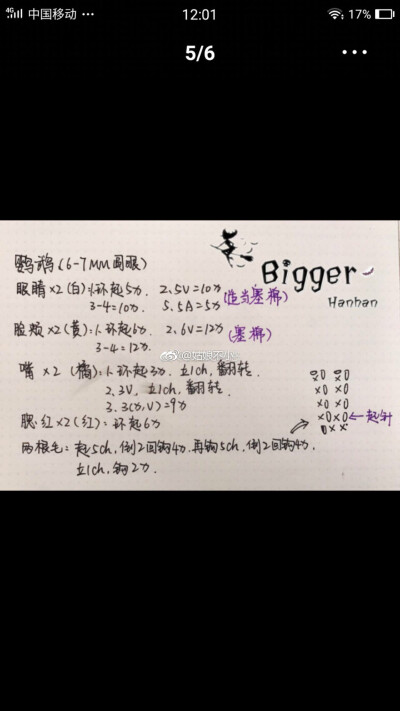 4G 中国移动 ··· 12:01 17%
5/6
鹦鹉(6-7MM圆眼)
Bigger
Hanhan
眼睛×2(白):1.环起5力. 2.5V=10力
3-4=10力. 5.5A=5力(适当塞棉)
脸颊×2(黄):1.环起6力. 2.6V=12力
3-4=12力. (塞棉)
嘴×2(橘):1.环起3力. 立1ch, 翻转.
2.3V. 立1ch, 翻转.
3.3(力,V)=9力
腮红×2(红):环起6力
两根毛:起5ch, 倒2回钩4力. 再钩5ch, 倒2回钩4力,
立1ch, 钩2力.
×0 ×0
×0 ×0
×0×0 ←起针
0××